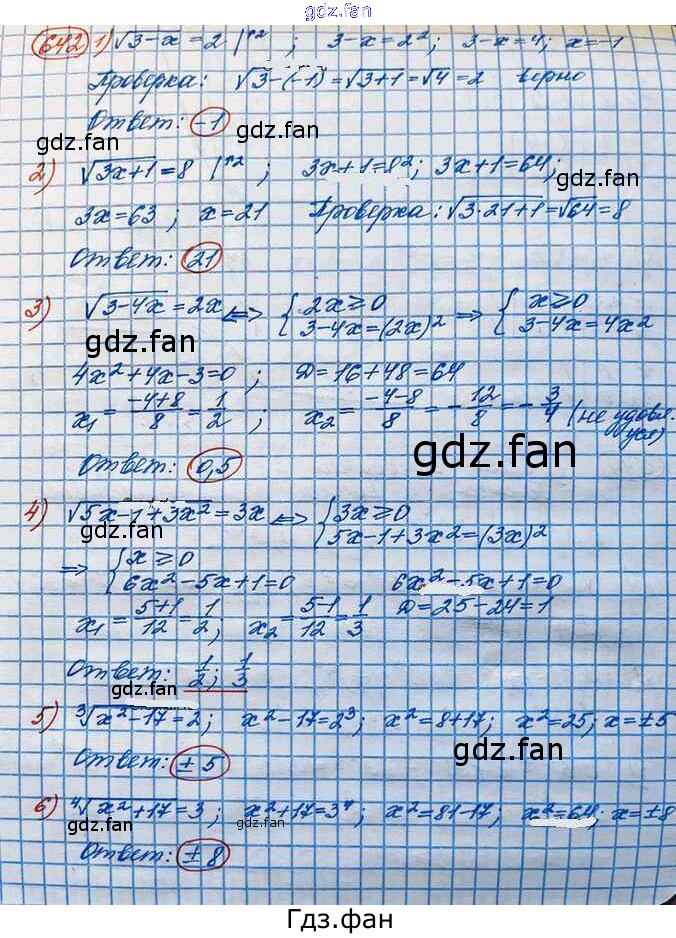 gdz.fan
642 1) √3-x = 2 |↑2 ; 3-x=2²; 3-x=4; x=-1
Проверка: √3-(-1) = √3+1 = √4 = 2 верно
Ответ: -1
gdz.fan gdz.fan
2) √3x+1 = 8 |↑2 ; 3x+1=8²; 3x+1=64;
gdz.fan
3x=63 ; x=21 Проверка: √3·21+1 = √64 = 8
Ответ: 21
3) √3-4x = 2x ⟺ { 2x≥0 ⇒ { x≥0
3-4x=(2x)² 3-4x=4x²
gdz.fan
4x²+4x-3=0 ; D=16+48=64
x₁ = (-4+8)/8 = 1/2 ; x₂ = (-4-8)/8 = -12/8 = -3/4 (не удовл. усл)
Ответ: 0,5
gdz.fan
4) √5x-1+3x² = 3x ⟺ { 3x≥0
5x-1+3x²=(3x)²
gdz.fan
⇒ { x≥0
6x²-5x+1=0 6x²-5x+1=0
x₁ = (5+1)/12 = 1/2 ; x₂ = (5-1)/12 = 1/3 D=25-24=1
gdz.fan
Ответ: 1/2; 1/3
gdz.fan gdz.fan
5) ³√x²-17 = 2; x²-17=2³; x²=8+17; x²=25; x=±5
gdz.fan
Ответ: ±5
6) ⁴√x²+17 = 3; x²+17=3⁴; x²=81-17; x²=64; x=±8
gdz.fan gdz.fan gdz.fan
Ответ: ±8
gdz.fan gdz.fan
Гдз.фан